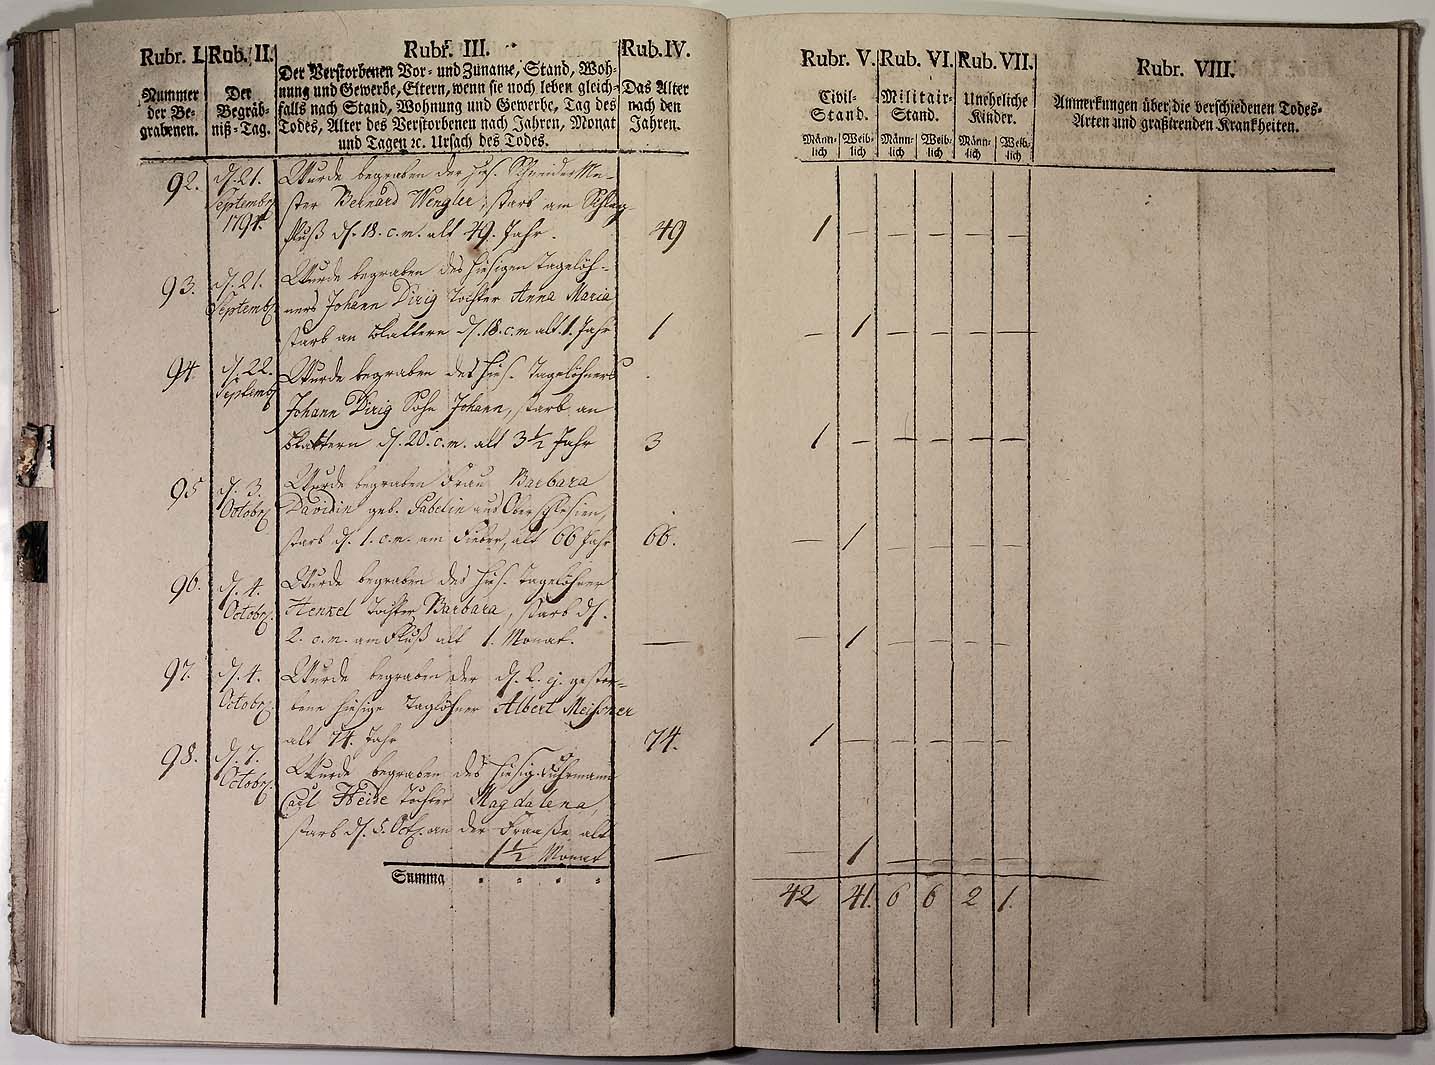 Rubr. I.
Nummer
der Be-
grabenen.
Rub. II.
Der
Begräb-
niß-Tag.
Rubr. III.
Der Verstorbenen Vor- und Zuname, Stand, Woh-
nung und Gewerbe, Eltern, wenn sie noch leben gleich-
falls nach Stand, Wohnung und Gewerbe, Tag des
Todes, Alter des Verstorbenen nach Jahren, Monat
und Tagen ꝛc. Ursach des Todes.
Rub. IV.
Das Alter
nach den
Jahren.
92.
d. 21.
Septembr
1794.
Wurde begraben der hies. Schneider Me-
ster Bernard Wengler, starb am Schlag
fluß d. 18. c. m. alt 49. Jahr.
49
93.
d. 21.
Septembr
Wurde begraben des hiesigen Tagelöh-
ners Johann Dirig Tochter Anna Maria
starb an Blattern d. 18. c. m alt. 1. Jahr
1
94.
d. 22.
Septembr
Wurde begraben des hies. Tagelöhners
Johann Dirig Sohn Johann, starb an
Blattern d. 20. c. m. alt 3½ Jahr
3
95
d. 3.
Octobr.
Wurde begraben Frau Barbara
Davidin geb. aus Oberschlesien,
starb d. 1. c. m. am Fieber, alt 66 Jahr
66.
96.
d. 4.
Octobr.
Wurde begraben des hies. Tagelöhner
Henkel Tochter Barbara, starb d.
2. c. m. am Fluß alt 1. Monat.
—
97.
d. 4.
Octobr.
Wurde begraben der d. 2. gestor-
bene hiesige Taglöhner Albert Meisner
alt 74. Jahr
74.
98.
d. 7.
Octobr.
Wurde begraben des hiesig. Fuhrmann
Carl Heide Tochter Magdalena,
starb d. 5. Oct. an der alt
1½ Monat
—
Summa
Rubr. V.
Civil-
Stand.
Männ-
lich
Weib-
lich
Rub. VI.
Militair-
Stand.
Männ-
lich
Weib-
lich
Rub. VII.
Uneheliche
Kinder.
Männ-
lich
Weib-
lich
Rubr. VIII.
Anmerkungen über die verschiedenen Todes-
Arten und graßirenden Krankheiten.
1 — — — — —
— 1 — — — —
1 — — — — —
— 1 — — — —
— 1 — — — —
1 — — — — —
— 1 — — — —
42 41. 6 6 2 1.